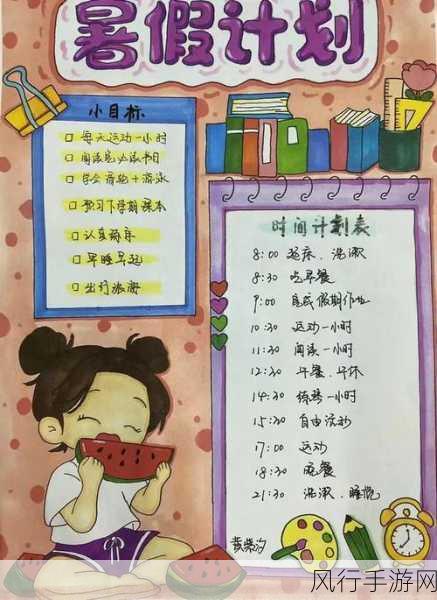 暑假计划
小目标
每天运动一小时
阅读完必读书目
学会滑轮+游泳
预习下学期课本
认真练字
早睡早起
出行旅游
时间计划表
8:00 起床、洗漱
8:30 吃早餐
9:00 完成假期作业
10:30 运动一小时
11:30 阅读一小时
12:30 午餐、午休
14:30 练琴一小时
15:30 自由活动
17:00 运动
18:30 晚餐
21:30 洗漱、睡觉
风行手游网